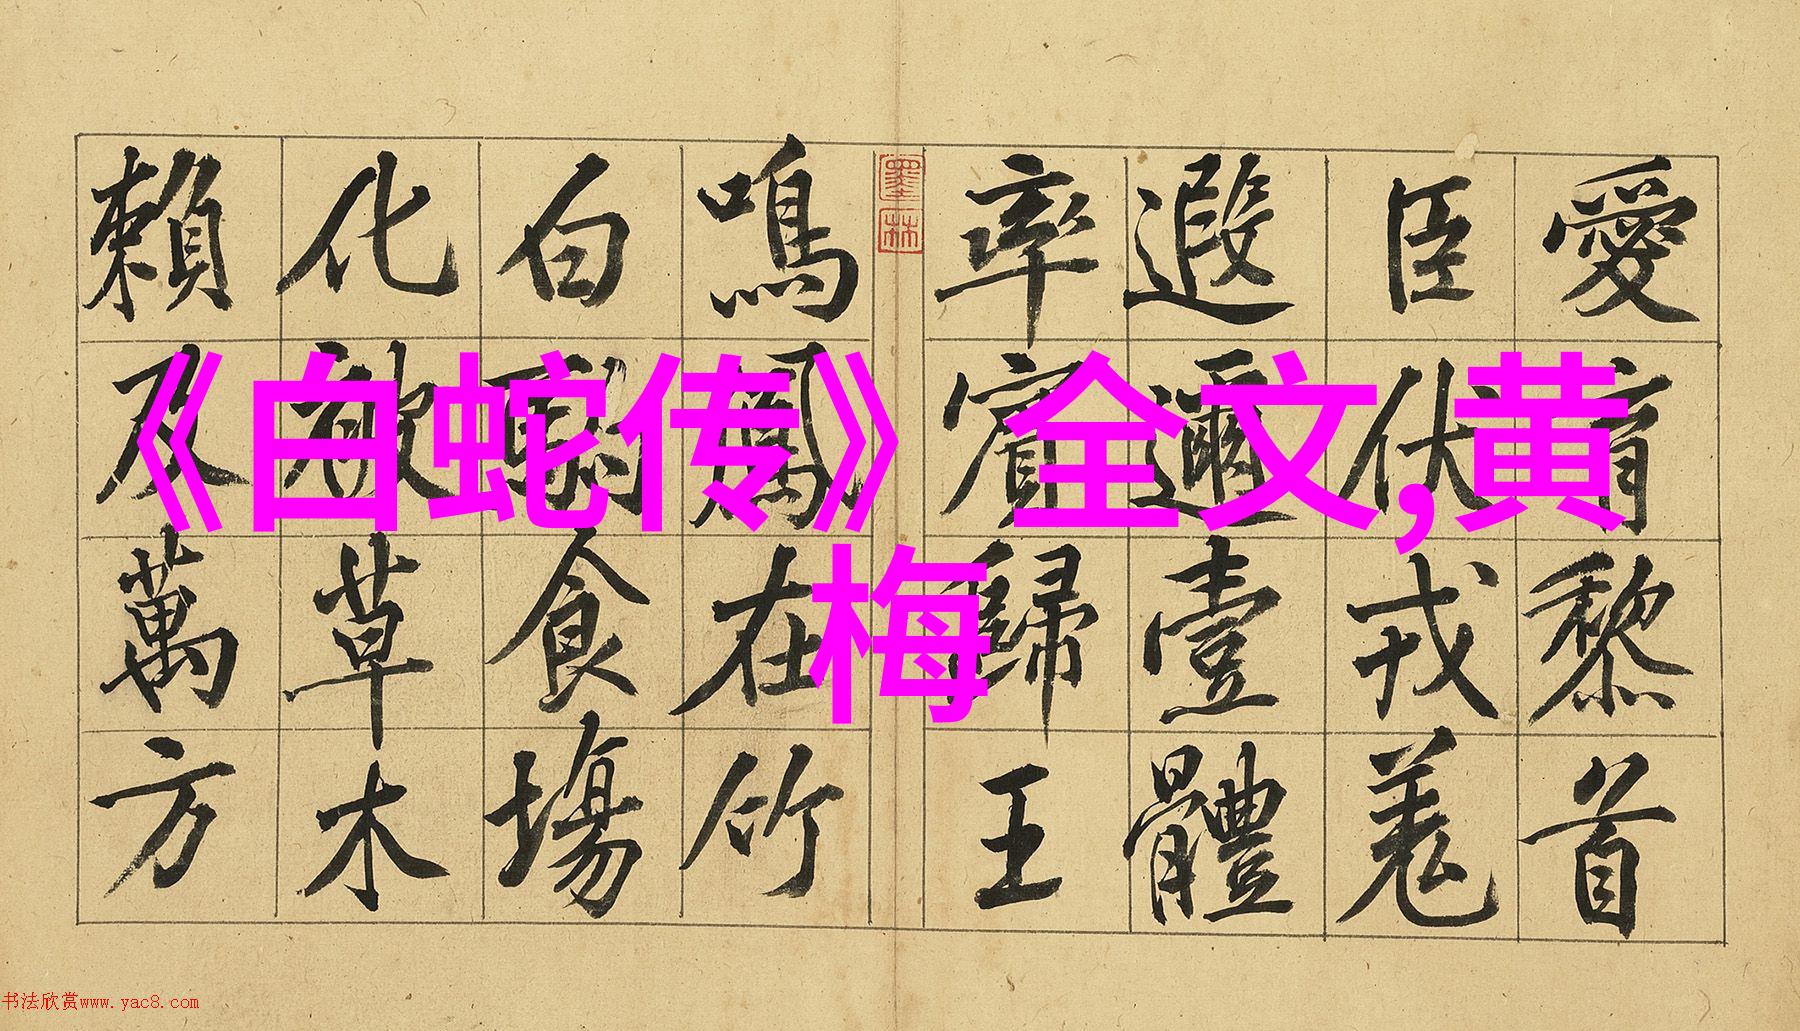 愛育黎首
臣伏戎羌
遐邇壹體
率賓歸王
墨林
鳴鳳在竹
白駒食場
化被草木
賴及萬方
《白蛇传》全文,黄
梅
书法欣赏www.yac8.com